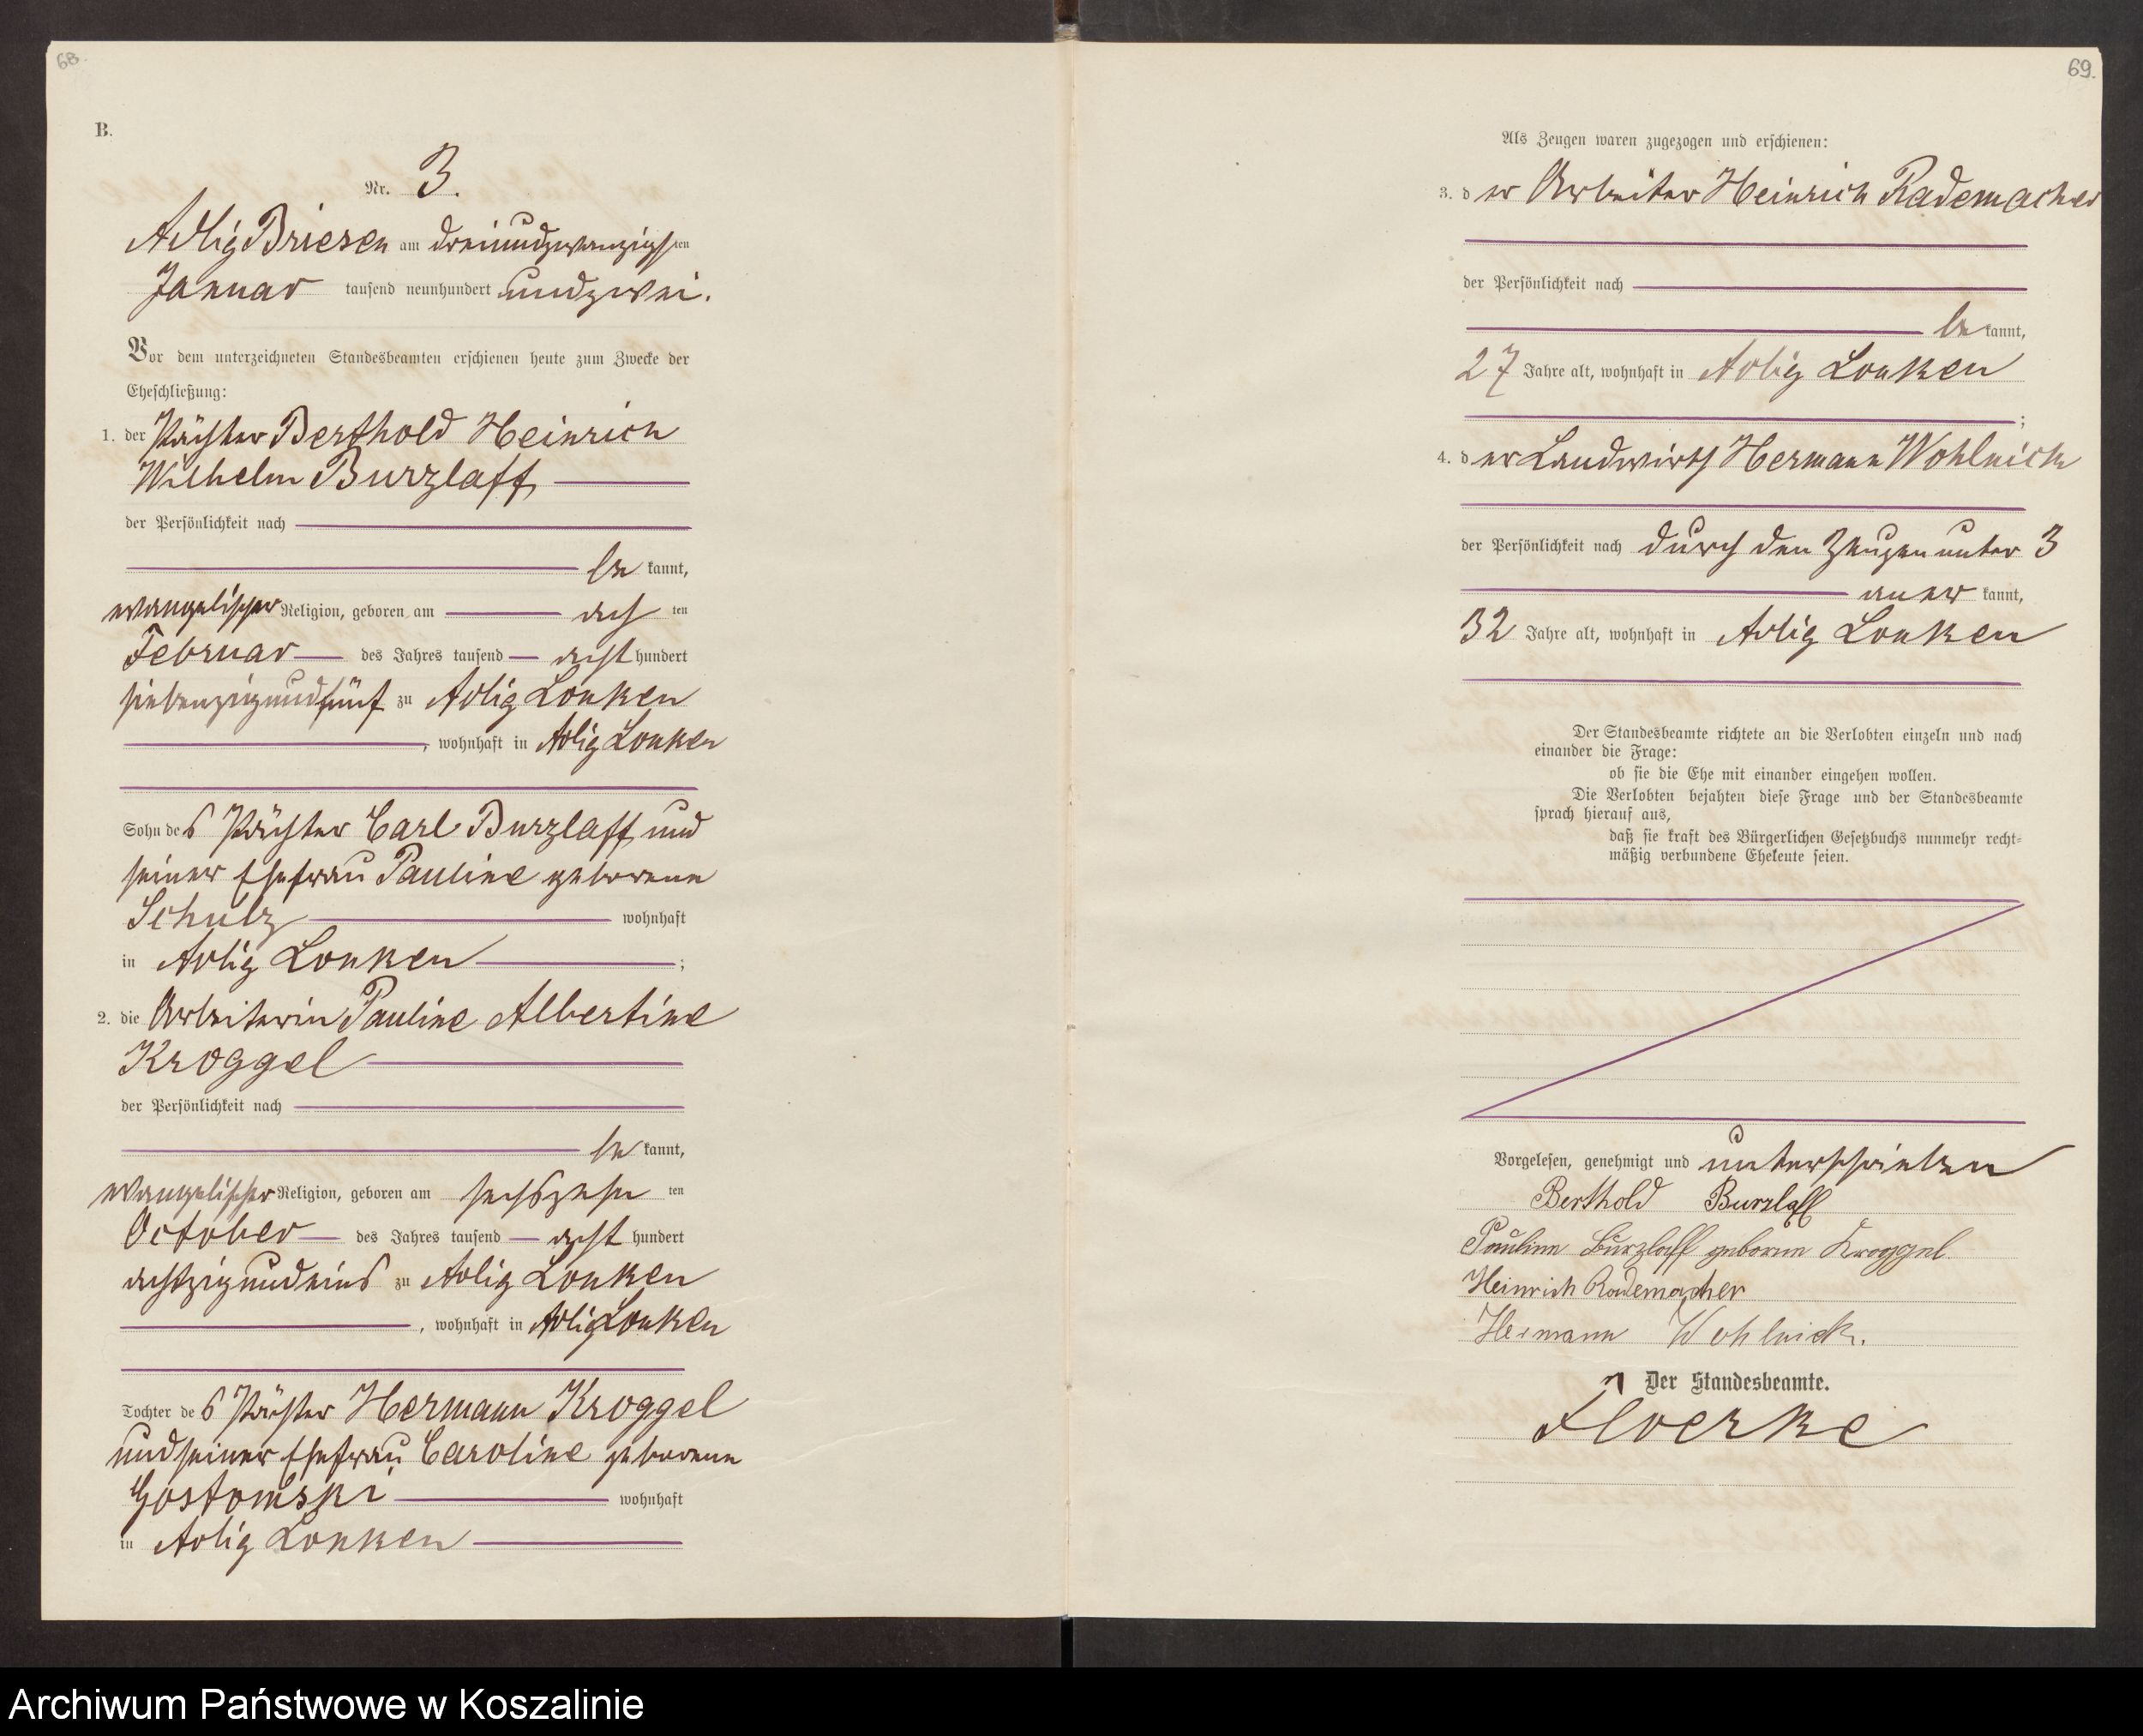 68.
B.
Nr. 3.
Adlig Briesen am dreiundzwanzigsten
Januar tausend neunhundert undzwei.
Vor dem unterzeichneten Standesbeamten erschienen heute zum Zwecke der
Eheschließung:
1. der Pächter Berthold Heinrich
Wilhelm Burzlaff
der Persönlichkeit nach
be kannt,
evangelischer Religion, geboren am acht ten
Februar des Jahres tausend acht hundert
siebenzigundfünf zu Adlig Lonken
, wohnhaft in Adlig Lonken
Sohn des Pächter Carl Burzlaff und
seiner Ehefrau Pauline geborene
Schulz wohnhaft
in Adlig Lonken ;
2. die Arbeiterin Pauline Albertine
Kroggel
der Persönlichkeit nach
be kannt,
evangelischer Religion, geboren am sechszehn ten
October des Jahres tausend acht hundert
achtzigundeins zu Adlig Lonken
, wohnhaft in Adlig Lonken
Tochter des Pächter Hermann Kroggel
und seiner Ehefrau Caroline geborene
Gostomski wohnhaft
in Adlig Lonken
69.
Als Zeugen waren zugezogen und erschienen:
3. der Arbeiter Heinrich Rademacher
der Persönlichkeit nach
be kannt,
27 Jahre alt, wohnhaft in Adlig Lonken
;
4. der Landwirth Hermann Wohlnick
der Persönlichkeit nach durch den Zeugen unter 3
aner kannt,
32 Jahre alt, wohnhaft in Adlig Lonken
Der Standesbeamte richtete an die Verlobten einzeln und nach
einander die Frage:
ob sie die Ehe mit einander eingehen wollen.
Die Verlobten bejahten diese Frage und der Standesbeamte
sprach hierauf aus,
daß sie kraft des Bürgerlichen Gesetzbuchs nunmehr recht-
mäßig verbundene Eheleute seien.
Vorgelesen, genehmigt und unterschrieben
Berthold Burzlaff
Pauline Burzlaff geborne Kroggel.
Heinrich Rademacher
Hermann Wohlnick.
Der Standesbeamte.
Floerke
Archiwum Państwowe w Koszalinie